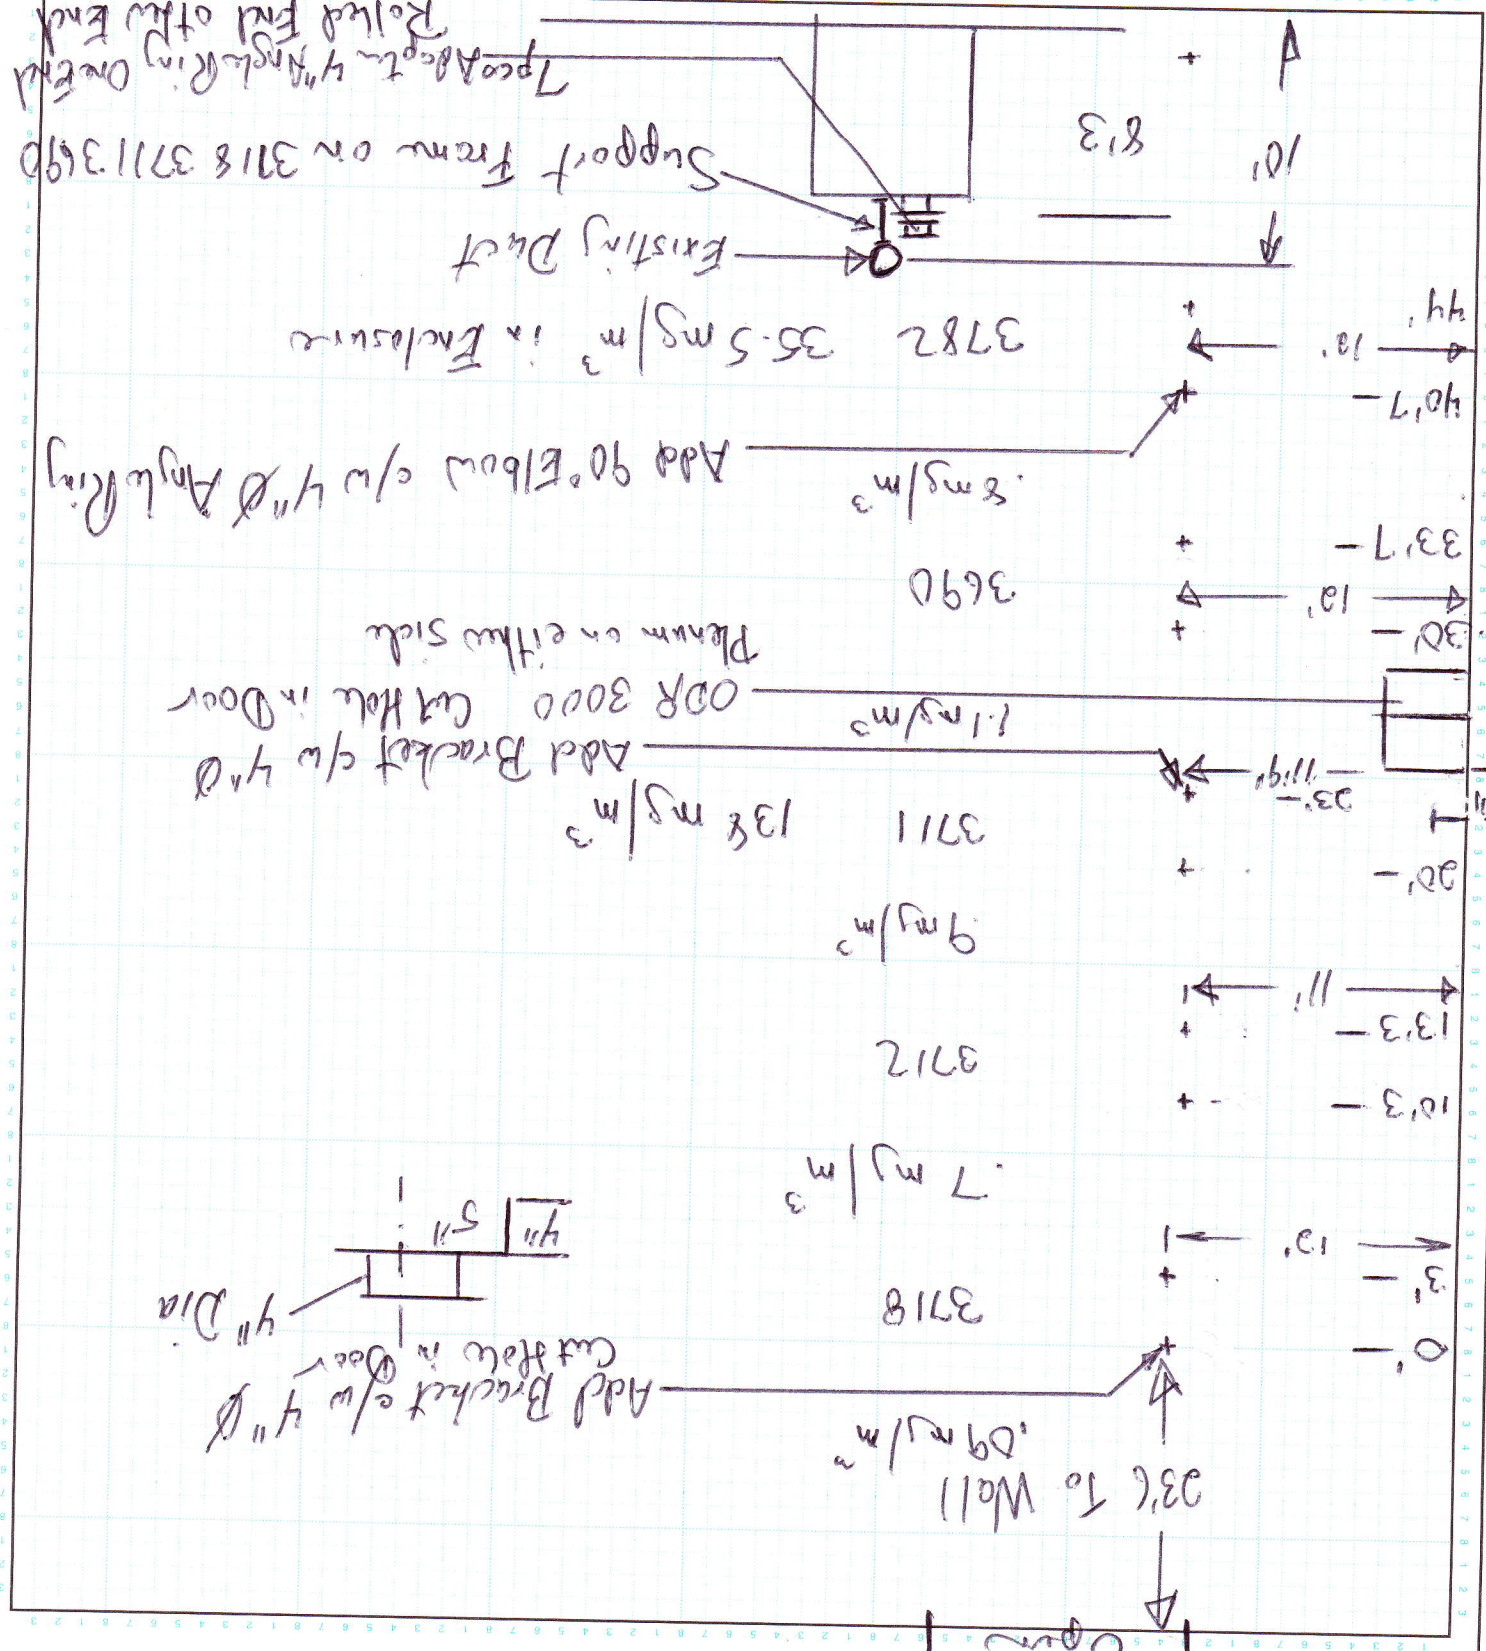 Open
23'6 To Wall
.09 mg/m³
Add Bracket c/w 4"Ø
Cut Hole in Door
0' –
3718
4" Dia
3' –
12'
4" 5"
.7 mg/m³
10'3 –
3712
13'3 –
11'
9 mg/m³
20' –
3711 138 mg/m³
23' –
11'9"
Add Bracket c/w 4"Ø
1.1 mg/m³
ODR 3000 Cut Hole in Door
Plenum on either side
30' –
12'
3690
33'7 –
.8 mg/m³
Add 90° Elbow c/w 4"Ø Angle Ring
40'7 –
12'
3782 35.5 mg/m³ in Enclosure
44'
Existing Duct
Support Frame on 3718 3711 3690
10'
8'3
7pcs Adapter 4" Angle Ring One End
Rolled End other End